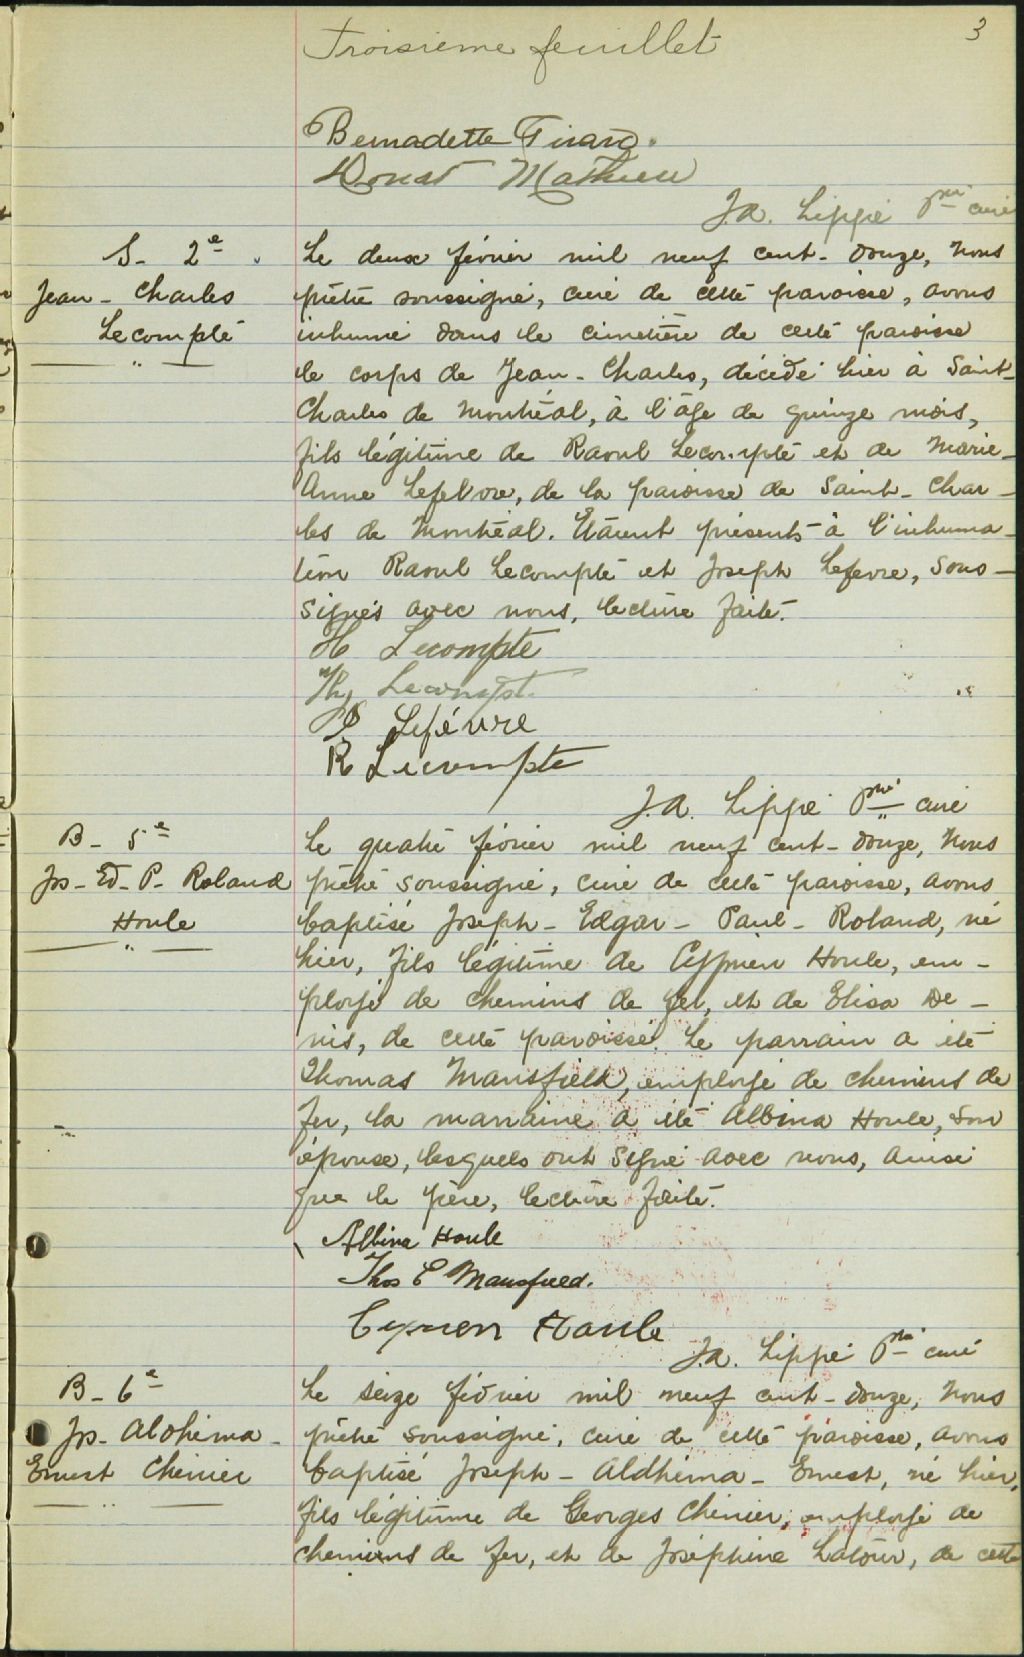 Troisième feuillet
3
Bernadette Girard.
Donat Mathieu
J.A. Lippé Ptre curé
S- 2e
Jean-Charles
Lecompte
Le deux février mil neuf cent-douze, Nous
prêtre soussigné, curé de cette paroisse, avons
inhumé dans le cimetière de cette paroisse
le corps de Jean-Charles, décédé hier à Saint-
Charles de Montréal, à l'âge de quinze mois,
fils légitime de Raoul Lecompte et de Marie-
Anne Lefebvre, de la paroisse de Saint-Char-
les de Montréal. Etaient présents à l'inhuma-
tion Raoul Lecompte et Joseph Lefevre, sous-
signés avec nous, lecture faite.
H Lecompte
Lecompt
Lefévre
R Lecompte
J.A. Lippé Ptre curé
B- 5e
Js-Ed-P-Roland
Houle
Le quatre février mil neuf cent-douze, Nous
prêtre soussigné, curé de cette paroisse, avons
baptisé Joseph-Edgar-Paul-Roland, né
hier, fils légitime de Cyprien Houle, em-
ployé de chemins de fer, et de Elisa De-
nis, de cette paroisse. Le parrain a été
Thomas Mansfield, employé de chemins de
fer, la marraine a été Albina Houle, son
épouse, lesquels ont signé avec nous, ainsi
que le père, lecture faite.
Albina Houle
Thos E Mansfield.
Cyprien Houle
J.A. Lippé Ptre curé
B- 6e
Js-Aldhéma-
Ernest Chénier
Le seize février mil neuf cent-douze, Nous
prêtre soussigné, curé de cette paroisse, avons
baptisé Joseph-Aldhéma-Ernest, né hier,
fils légitime de Georges Chénier, employé de
chemins de fer, et de Joséphine Latour, de cette